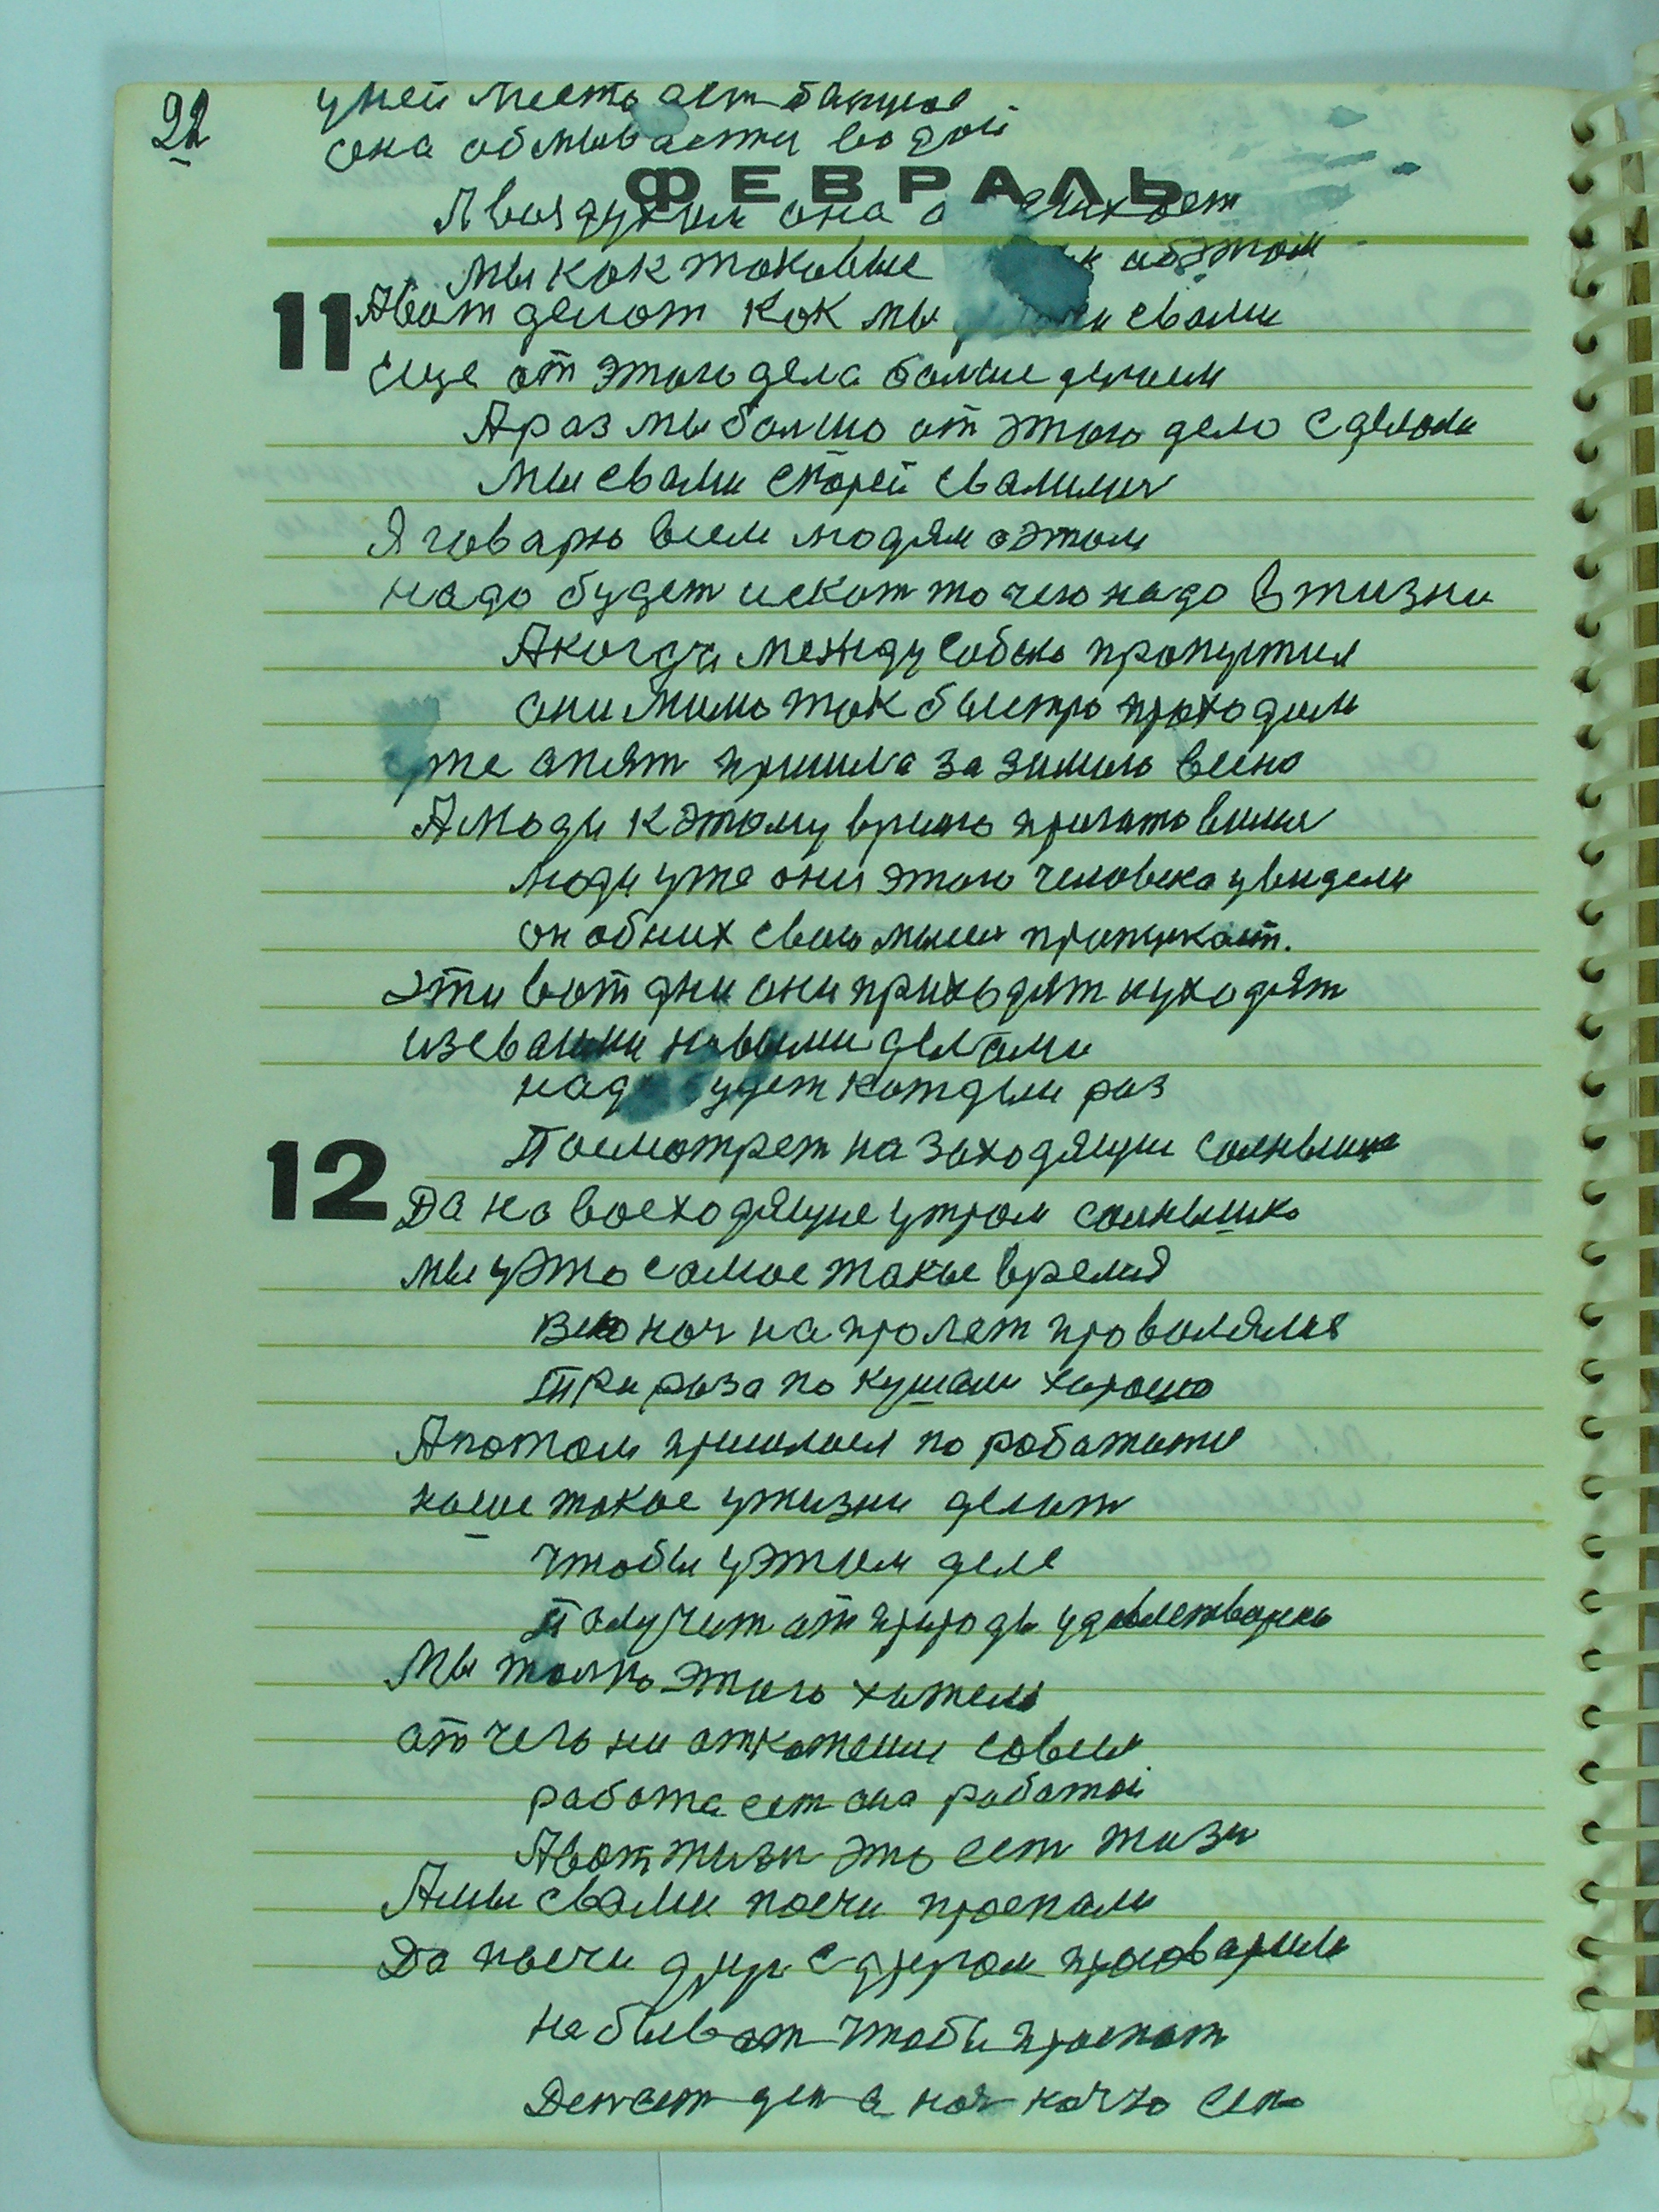 22
у ней место ест
она обмывается водой
ФЕВРАЛЬ
Авоздухом она
мы как таковые об этом
11
Авот делат как мы свами
еще от этого дела болше делаем
Араз мы болшо от этого дело сделали
мы свами скорей свалимся
Я говарю всем людям о этом
надо будет искат то чего надо в жизни
Акогда между собою пропустил
они мимо так быстро проходили
уже опят пришла за зимою весна
Алюди к этому время приготовилис
люди уже они этого человека увидели
он об них свою мысл
эти вот дни они приходят иуходят
изсвоими новыми делами
надо будет каждый раз
Посмотрет на заходящия солнышко
12
Да на восходящие утром солнышко
мы уэто самое такое времия
всю ноч напролет провалялис
три раза по кушали хорошо
Апотом пришлося по работати
наше такое ужизни делат
чтобы уэтим деле
получит от природы
мы толко этого хотели
от чего ни откажеши совсем
работа ест она работой
Авот жизн это ест жизн
Амы свами почи проспали
Да почи друг с другом проговарили
не бывает чтобы проспат
Ден ест ден а ноч